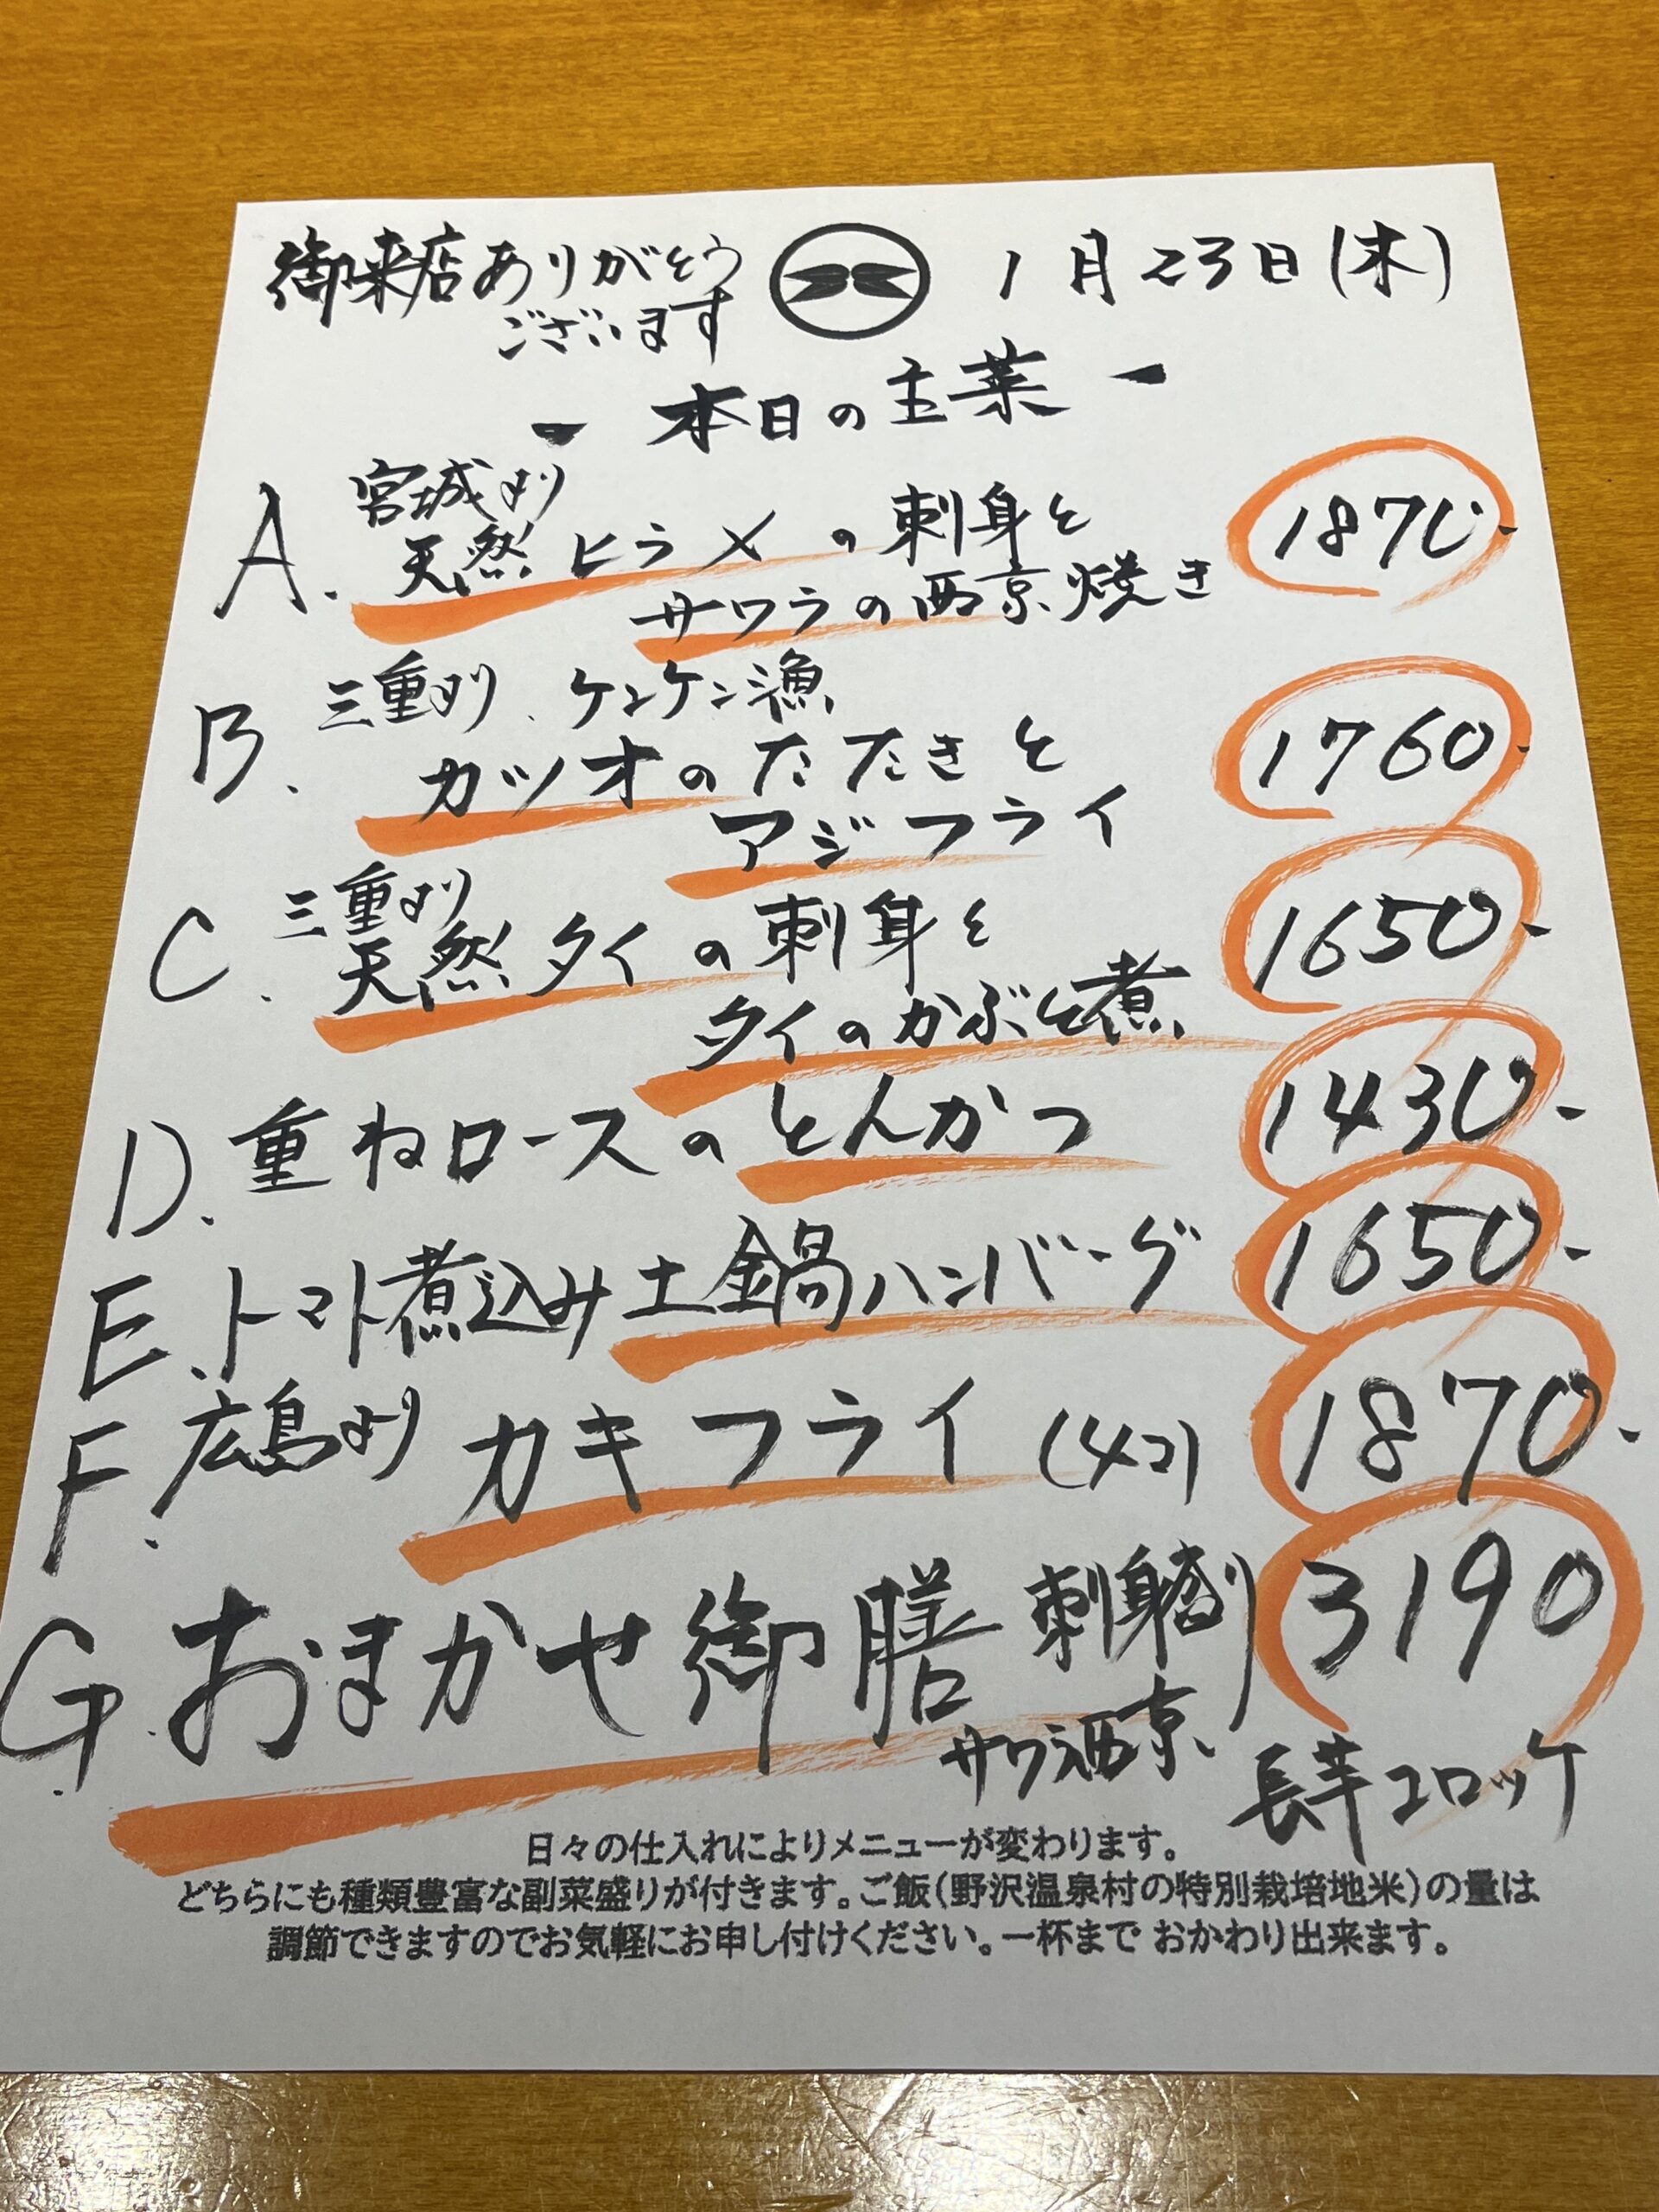 御来店ありがとう
ございます
1月23日(木)
- 本日の主菜 -
A. 宮城より
天然ヒラメの刺身と
サワラの西京焼き
1870-
B. 三重より、ケンケン漁
カツオのたたきと
アジフライ
1760-
C. 三重より
天然タイの刺身と
タイのかぶと煮
1650-
D. 重ねロースのとんかつ 1430-
E. トマト煮込み土鍋ハンバーグ 1650-
F. 広島より カキフライ (4コ) 1870-
G. おまかせ御膳 刺身盛り 3190
サワラ西京、長芋コロッケ
日々の仕入れによりメニューが変わります。
どちらにも種類豊富な副菜盛りが付きます。ご飯(野沢温泉村の特別栽培地米)の量は
調節できますのでお気軽にお申し付けください。一杯まで おかわり出来ます。